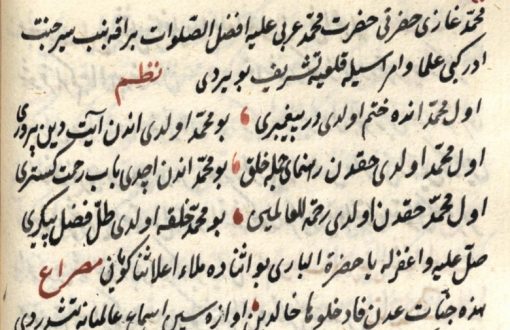 محمد غازی حضرتی حضرت محمد عربی علیه افضل الصلوات براقه بنب سیر جنت
ادر کبی علما وامرا سیله قلعیه تشریف بویردی نظم
اول محمد انده ختم اولدی در پیغمبری بو محمد اولدی اندن آیت دین پروری
اول محمد اولدی حقدن رهنمای جمله خلق بو محمد اندن اچدی باب رحمت کستری
اول محمد حقدن اولدی رحمة للعالمین بو محمد خلقه اولدی ظل فضل پیکری
صل علیه واغفر له یا حضرة الباری بو اثناده ملاء اعلا ثناکویان مصراع
هذه جنات عدن فادخلوها خالدین اوازه سین اسماع عالمیانه یتشدردی